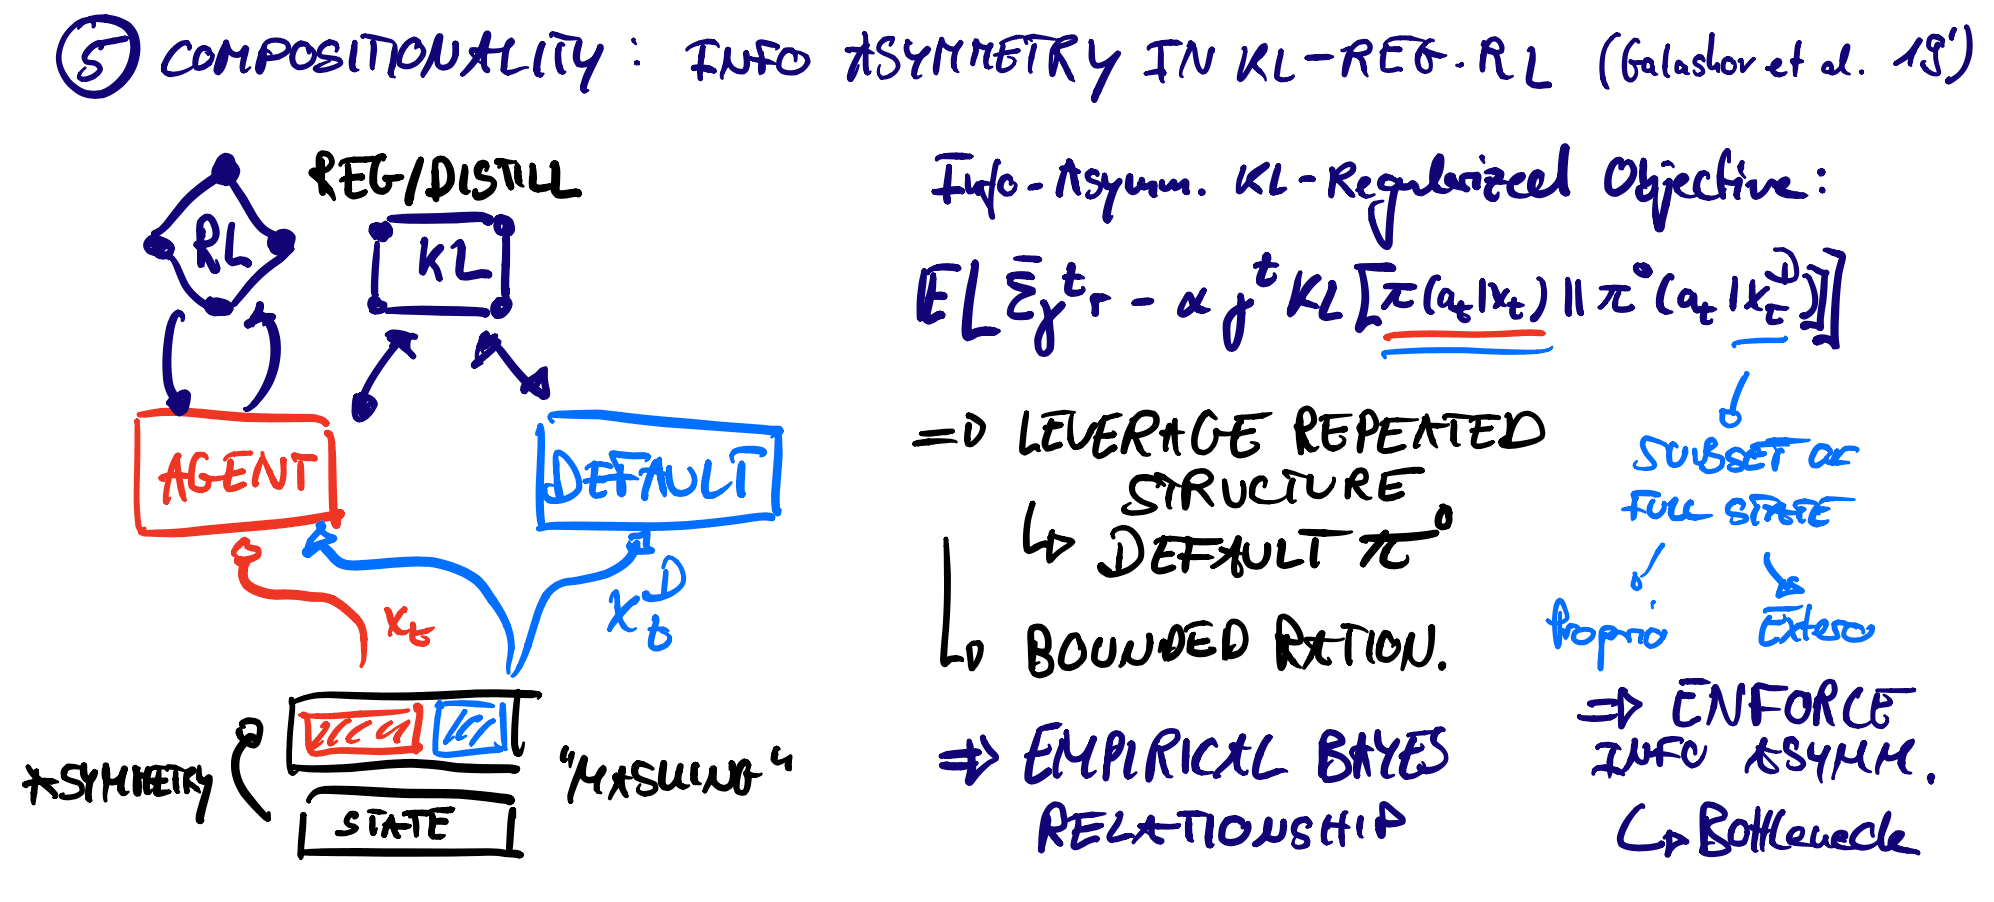 5 COMPOSITIONALITY: INFO ASYMMETRY IN KL-REG. RL (Galashov et al. 19')
REG/DISTILL
RL
KL
AGENT
DEFAULT
x_t
x_t^D
ASYMMETRY
"MASKING"
STATE
Info-Asymm. KL-Regularized Objective:
E[Σγ^t r - αγ^t KL[π(a_t|x_t) || π^0(a_t|x_t^D)]]
=> LEVERAGE REPEATED
STRUCTURE
↳ DEFAULT π^0
↳ BOUNDED RATION.
=> EMPIRICAL BAYES
RELATIONSHIP
SUBSET OF
FULL STATE
Proprio
Extero
=> ENFORCE
INFO ASYMM.
↳ Bottleneck